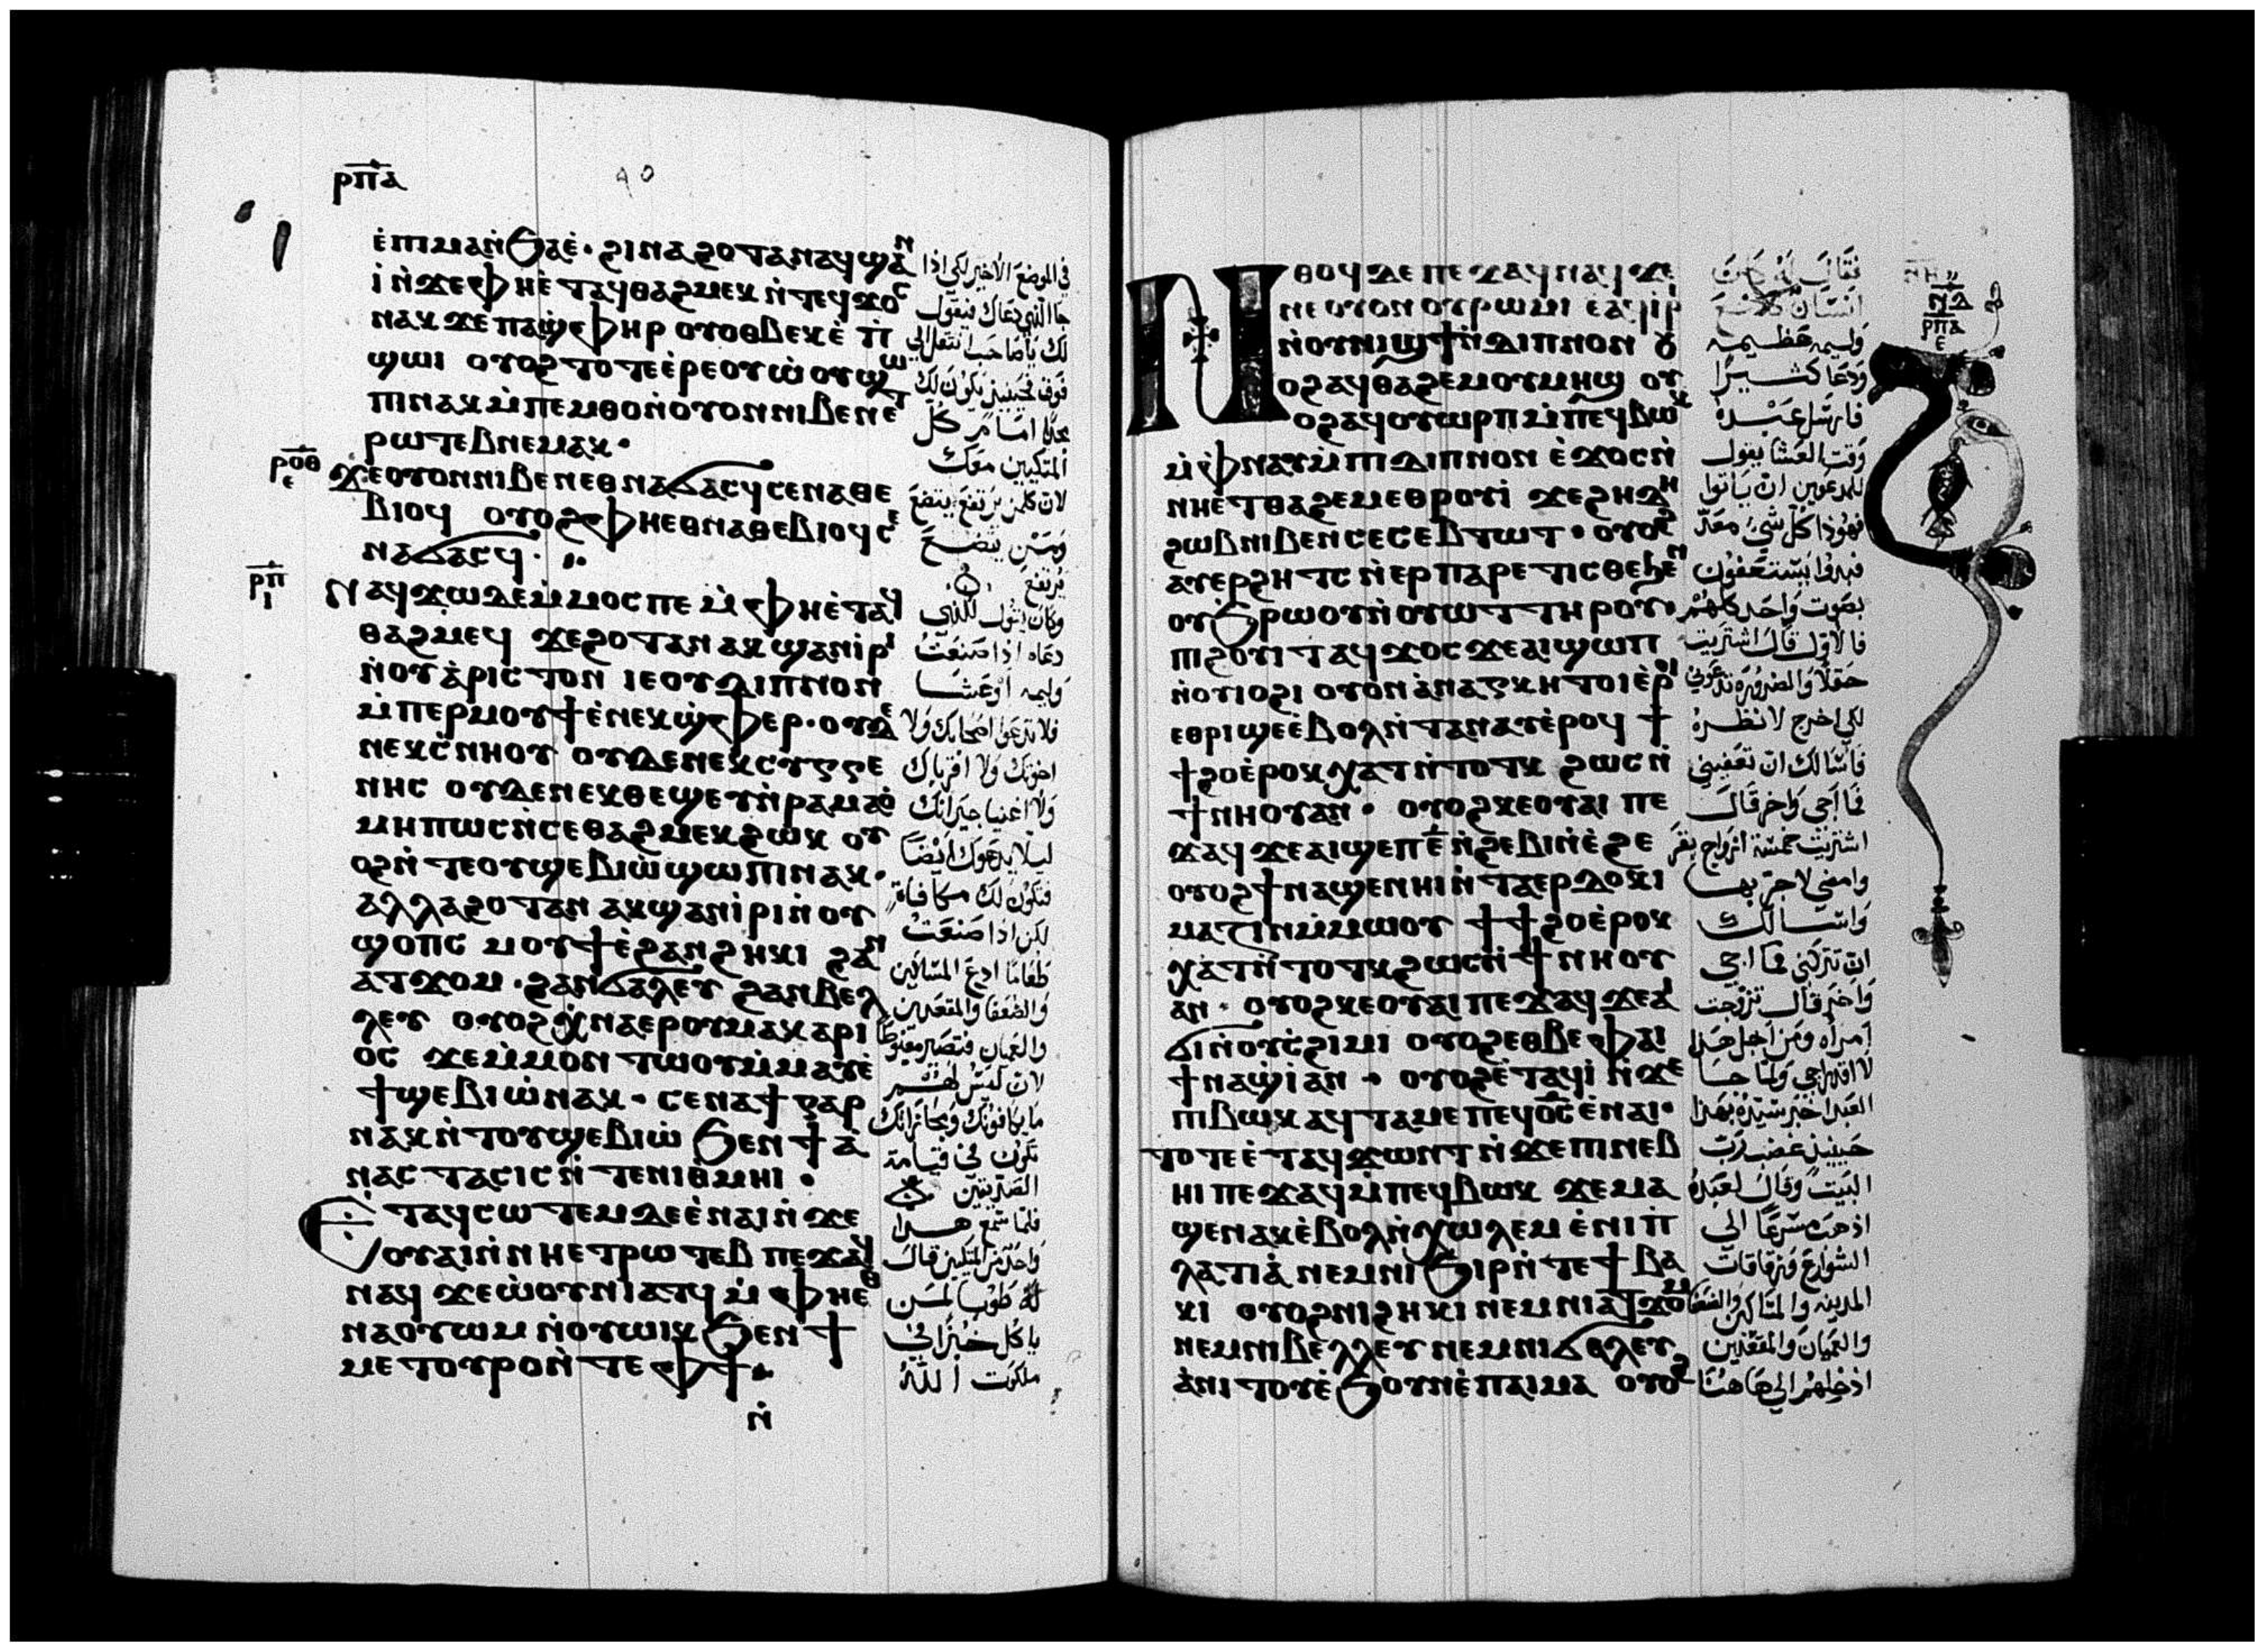 ⲣⲡⲇ
ⲉ̀ⲡⲓⲙⲁⲛ̀ϧⲁⲉ̀· ϩⲓⲛⲁϩⲟⲧⲁⲛⲁϥϣⲁⲛ
ⲓ̀ⲛ̀ϫⲉⲫⲏⲉ̀ⲧⲁϥⲑⲁϩⲙⲉⲕ ⲛ̀ⲧⲉϥϫⲟⲥ
ⲛⲁⲕ ϫⲉⲡⲁϣ̀ⲫⲏⲣ ⲟⲩⲟⲑⲃⲉⲕⲉ̀ ⲡ̀
ϣⲱⲓ ⲟⲩⲟϩ ⲧⲟⲧⲉⲉ̀ⲣⲉⲟⲩⲱ̀ⲟⲩϣⲱ
ⲡⲓⲛⲁⲕ ⲙ̀ⲡⲉⲙⲑⲟⲛ̀ⲟⲩⲟⲛⲛⲓⲃⲉⲛⲉⲧ
ⲣⲱⲧⲉⲃⲛⲉⲙⲁⲕ·
ⲣⲟⲑ ⲉ
ϫⲉⲟⲩⲟⲛⲛⲓⲃⲉⲛⲉⲑⲛⲁϭⲁⲥϥ ⲥⲉⲛⲁⲑⲉ
ⲃⲓⲟϥ ⲟⲩⲟϩⲫⲏⲉⲑⲛⲁⲑⲉⲃⲓⲟϥ ⲥⲉ
ⲛⲁϭⲁⲥϥ·
ⲣⲡ ⲓ
Ⲛⲁϥϫⲱⲇⲉⲙ̀ⲙⲟⲥⲡⲉ ⲙ̀ⲫⲏⲉ̀ⲧⲁϥ
ⲑⲁϩⲙⲉϥ ϫⲉϩⲟⲧⲁⲛ ⲁⲕϣⲁⲛⲓⲣⲓ
ⲛ̀ⲟⲩⲁ̀ⲣⲓⲥⲧⲟⲛ ⲓⲉⲟⲩⲇⲓⲡⲛⲟⲛ
ⲙ̀ⲡⲉⲣⲙⲟⲩϯⲉ̀ⲛⲉⲕϣ̀ⲫⲉⲣ· ⲟⲩⲇⲉ
ⲛⲉⲕⲥ̀ⲛⲏⲟⲩ ⲟⲩⲇⲉⲛⲉⲕⲥⲩⲅⲅⲉ
ⲛⲏⲥ ⲟⲩⲇⲉⲛⲉⲕⲑⲉϣⲉⲩⲛ̀ⲣⲁⲙⲁⲟ̀
ⲙⲏⲡⲱⲥⲛ̀ⲥⲉⲑⲁϩⲙⲉⲕϩⲱⲕ ⲟⲩ
ⲟϩⲛ̀ⲧⲉⲟⲩϣⲉⲃⲓⲱ̀ϣⲱⲡⲓⲛⲁⲕ·
ⲁⲗⲗⲁϩⲟⲧⲁⲛ ⲁⲕϣⲁⲛⲓ̀ⲣⲓⲛ̀ⲟⲩ
ϣⲟⲡⲥ ⲙⲟⲩϯⲉ̀ϩⲁⲛϩⲏⲕⲓ ϩⲁⲛ
ⲁⲧϫⲟⲙ· ϩⲁⲛϭⲁⲗⲉⲩ ϩⲁⲛⲃⲉⲗ
ⲗⲉⲩ ⲟⲩⲟϩ ⲭ̀ⲛⲁⲉⲣⲟⲩⲙⲁⲕⲁⲣⲓ
ⲟⲥ ϫⲉⲙ̀ⲙⲟⲛ ⲧⲱⲟⲩⲙ̀ⲙⲁⲩⲉ̀
ϯϣⲉⲃⲓⲱ̀ⲛⲁⲕ· ⲥⲉⲛⲁϯ ⲅⲁⲣ
ⲛⲁⲕⲛ̀ⲧⲟⲩϣⲉⲃⲓⲱ̀ ϧⲉⲛϯⲁ̀
ⲛⲁⲥⲧⲁⲥⲓⲥⲛ̀ⲧⲉⲛⲓⲑ̀ⲙⲏⲓ·
Ⲉ̀ⲧⲁϥⲥⲱⲧⲉⲙⲇⲉⲉ̀ⲛⲁⲓⲛ̀ϫⲉ
ⲟⲩⲁⲓⲛ̀ⲛⲏⲉⲧⲣⲱⲧⲉⲃ ⲡⲉϫⲁϥ
ⲛⲁϥ ϫⲉⲱ̀ⲟⲩⲛⲓⲁⲧϥ ⲙ̀ⲫⲏⲉⲑ
ⲛⲁⲟⲩⲱⲙ ⲛ̀ⲟⲩⲱⲓⲕ ϧⲉⲛϯ
ⲙⲉⲧⲟⲩⲣⲟⲛ̀ⲧⲉⲫϯ·
ⲛ̀
في الموضع الاخير لكي اذا
جا الذي دعاك فيقول
لك يا صاحب انتقل الي
فوق فحينيذ يكون لك
مجدًا امام كل
المتكيين معك
لان كلمن يرتفع يتضع
ومن يتضع
يرتفع
وكان يقول للذي
دعاه اذا صنعت
وليمه او عشا
فلا تدعو اصحابك ولا
اخوتك ولا اقرباك
ولا اغنيا جيرانك
ليلا يدعوك ايضا
فتكون لك مكافاة
لكن اذا صنعت
طعامًا ادع المساكين
والضعفا والمقعدين
والعميان فتصير مغبوطا
لان ليس لهم
ما يكافونك ومجازاتك
تكون في قيامة
الصديقين
فلما سمع هذا
واحد من المتكين قال
له طوبا لمن
ياكل خبزًا في
ملكوت الله
Ⲛⲑⲟϥ ⲇⲉ ⲡⲉϫⲁϥⲛⲁϥ ϫⲉ
ⲛⲉⲟⲩⲟⲛ ⲟⲩⲣⲱⲙⲓ ⲉⲁϥⲓⲣⲓ
ⲛ̀ⲟⲩⲛⲓϣϯⲛ̀ⲇⲓⲡⲛⲟⲛ ⲟⲩ
ⲟϩⲁϥⲑⲁϩⲉⲙⲟⲩⲙⲏϣ ⲟⲩ
ⲟϩⲁϥⲟⲩⲱⲣⲡⲙ̀ⲡⲉϥⲃⲱⲕ
ⲙ̀ⲫⲛⲁⲩⲙ̀ⲡⲓⲇⲓⲡⲛⲟⲛ ⲉ̀ϫⲟⲥⲛ̀
ⲛⲏⲉ̀ⲧⲑⲁϩⲉⲙⲉⲑⲣⲟⲩⲓ̀ ϫⲉϩⲏⲇⲏ
ϩⲱⲃⲛⲓⲃⲉⲛⲥⲉⲥⲉⲃⲧⲱⲧ· ⲟⲩⲟϩ
ⲁⲩⲉⲣϩⲏⲧⲥ ⲛ̀ⲉⲣⲡⲁⲣⲉⲧⲓⲥⲑⲉϧⲉⲛ
ⲟⲩϧⲣⲱⲟⲩⲛ̀ⲟⲩⲱⲧⲧⲏⲣⲟⲩ·
ⲡⲓϩⲟⲩⲓⲧⲁϥϫⲟⲥϫⲉⲁⲓϣⲱⲡ
ⲛ̀ⲟⲩⲓⲟϩⲓ ⲟⲩⲟⲛⲁ̀ⲛⲁⲅⲕⲏⲧⲟⲓⲉ̀ⲣⲟⲓ
ⲉⲑⲣⲓϣⲉⲉ̀ⲃⲟⲗⲛ̀ⲧⲁⲛⲁⲩⲉ̀ⲣⲟϥ ϯ
ϯϩⲟⲉ̀ⲣⲟⲕⲭⲁⲧⲛ̀ⲧⲟⲧⲕ ϩⲱⲥⲛ̀
ϯⲛⲏⲟⲩⲁⲛ· ⲟⲩⲟϩⲕⲉⲟⲩⲁⲓ ⲡⲉ
ϫⲁϥ ϫⲉⲁⲓϣⲉⲡⲉ̅ⲛ̀ϩⲉⲃⲓⲛ̀ⲉ̀ϩⲉ
ⲟⲩⲟϩϯⲛⲁϣⲉⲛⲏⲓⲛ̀ⲧⲁⲉⲣⲇⲟⲕⲓ
ⲙⲁⲍⲓⲛⲙ̀ⲙⲱⲟⲩ ϯϯϩⲟⲉ̀ⲣⲟⲕ
ⲭⲁⲧⲛ̀ⲧⲟⲧⲕϩⲱⲥⲛ̀ϯⲛⲏⲟⲩ
ⲁⲛ· ⲟⲩⲟϩⲕⲉⲟⲩⲁⲓⲡⲉϫⲁϥ ϫⲉⲁⲓ
ϭⲓⲛ̀ⲟⲩⲥ̀ϩⲓⲙⲓ ⲟⲩⲟϩⲉⲑⲃⲉⲫⲁⲓ
ϯⲛⲁϣ̀ⲓ̀ⲁⲛ· ⲟⲩⲟϩⲉ̀ⲧⲁϥⲓ̀ ⲛ̀ϫⲉ
ⲡⲓⲃⲱⲕ ⲁϥⲧⲁⲙⲉⲡⲉϥⲟ̅ⲥ̅ⲉ̀ⲛⲁⲓ·
ⲧⲟⲧⲉⲉ̀ⲧⲁϥϫⲱⲛⲧⲛ̀ϫⲉⲡⲓⲛⲉⲃ
ⲏⲓ ⲡⲉϫⲁϥⲙ̀ⲡⲉϥⲃⲱⲕ ϫⲉⲙⲁ
ϣⲉⲛⲁⲕⲉ̀ⲃⲟⲗⲛ̀ⲭⲱⲗⲉⲙ ⲉ̀ⲛⲓⲡ̀
ⲗⲁⲧⲓⲁ̀ ⲛⲉⲙⲛⲓϧⲓⲣⲛ̀ⲧⲉϯⲃⲁ
ⲕⲓ ⲟⲩⲟϩⲛⲓϩⲏⲕⲓⲛⲉⲙⲛⲓⲁⲧϫⲟⲙ
ⲛⲉⲙⲛⲓⲃⲉⲗⲗⲉⲩⲛⲉⲙⲛⲓϭⲁⲗⲉⲩ
ⲁ̀ⲛⲓⲧⲟⲩⲉ̀ϧⲟⲩⲛⲉ̀ⲡⲁⲓⲙⲁ ⲟⲩⲟϩ
ⲛⲏ
ⲛⲇ
ⲣⲡⲁ
ⲉ
فقال له كان
انسان صنع
وليمه عظيمه
ودعا كثيرًا
فارسل عبده
وقت العشا يقول
للمدعوين ان ياتوا
فهوذا كل شي معد
فبدوا يستعفون
بصوت واحد كلهم
فالاول قال اشتريت
حقلا والضروره تدعوني
لكي اخرج لانظره
فاسالك ان تعفيني
فما اجي واخر قال
اشتريت خمسة ازواج بقر
وامضي لاجربها
واسالك
ان تتركني فما اجي
واخر قال تزوجت
امراه ومن اجل هذا
لا اقدر اجي ولما جا
العبد اخبر سيده بهذا
حينيذ غضب رب
البيت وقال لعبده
اذهب مسرعًا الي
الشوارع وزقاقات
المدينه والمساكين والضعفا
والعميان والمقعدين
ادخلهم الي هاهنا